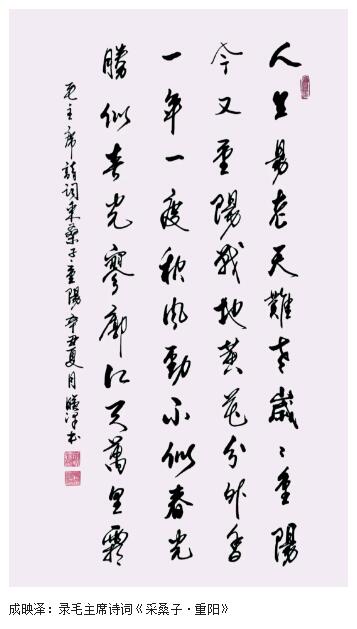 人生易老天難老歲々重陽
今又重陽战地黃花分外香
一年一度秋风勁不似春光
勝似春光寥廓江天萬里霜
毛主席詩词采桑子·重陽辛丑夏月映泽书
成映泽：录毛主席诗词《采桑子·重阳》